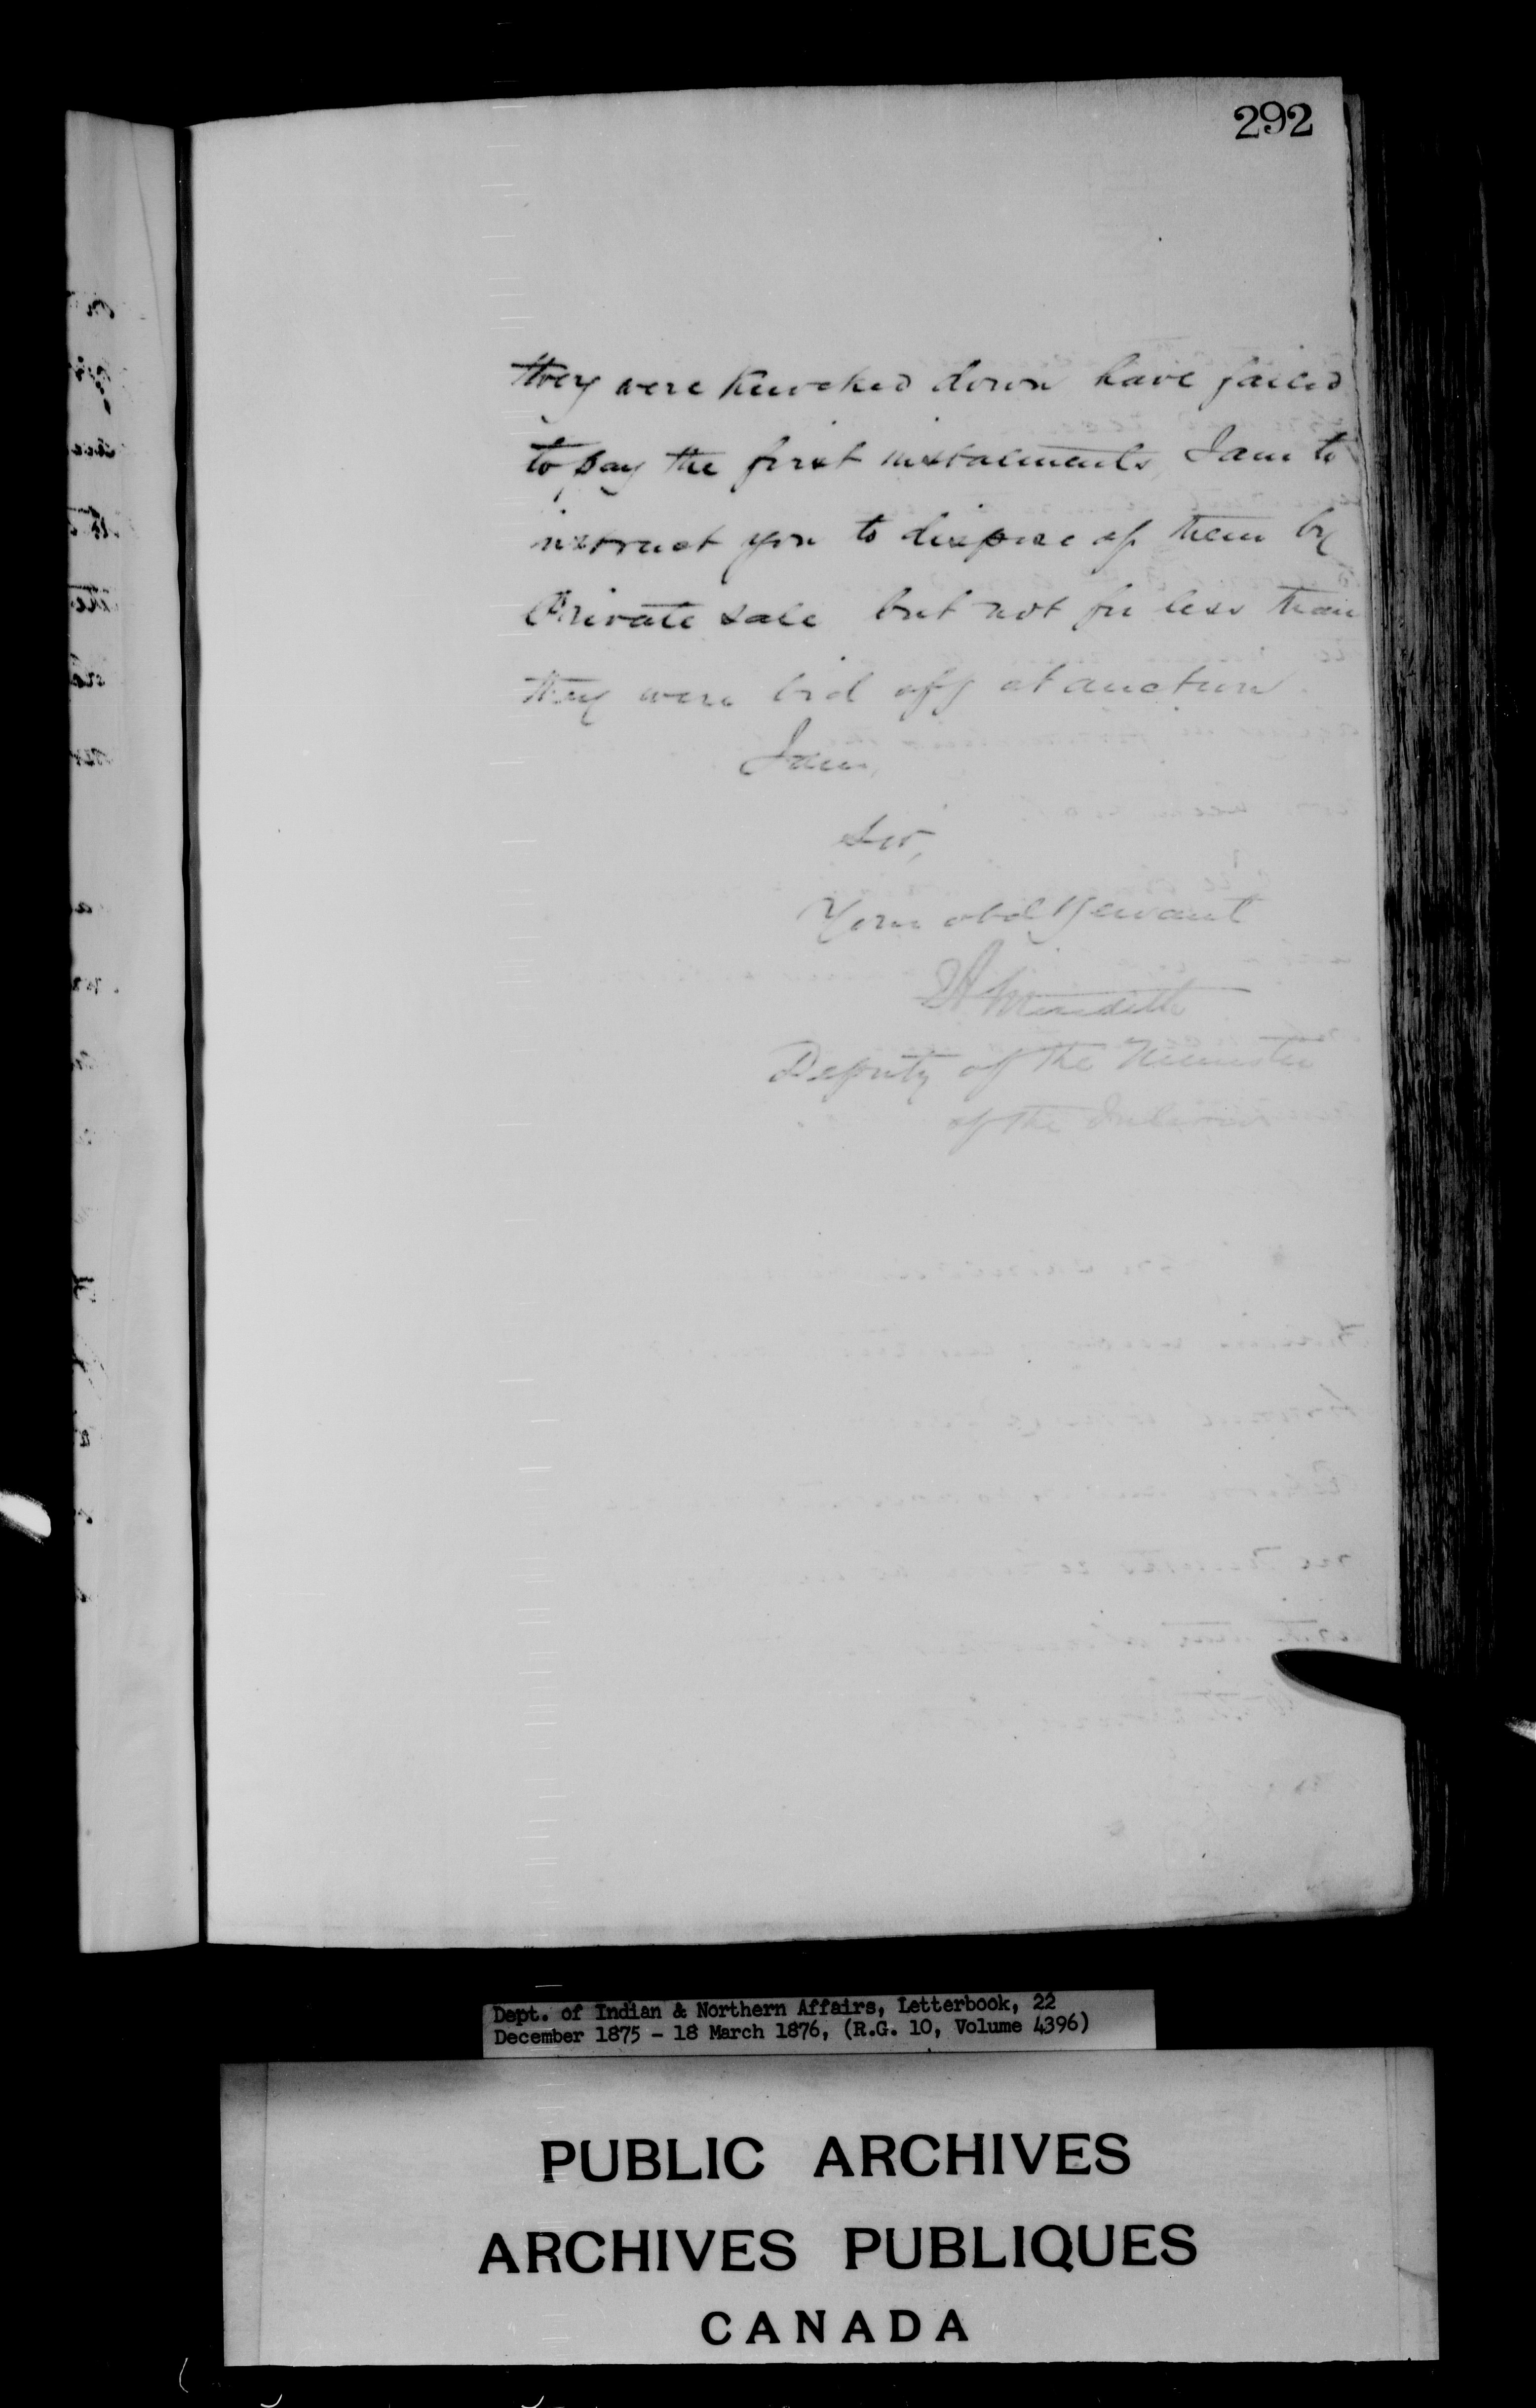 292
they were knocked down have failed
to pay the first instalments, I am to
instruct you to dispose of them by
Private sale but not for less than
they were bid off at auction.
I am,
Sir,
Your obdt Servant
EA Meredith
Deputy of the Minister
of the Interior
Dept. of Indian & Northern Affairs, Letterbook, 22
December 1875 - 18 March 1876, (R.G. 10, Volume 4396)
PUBLIC ARCHIVES
ARCHIVES PUBLIQUES
CANADA